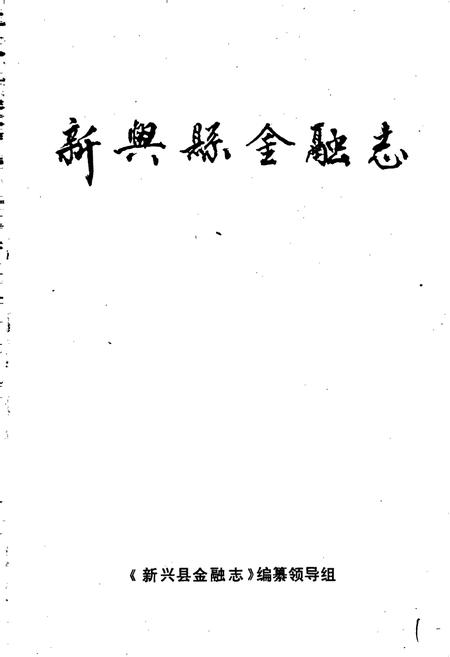 新興縣金融志
《新兴县金融志》编纂领导组